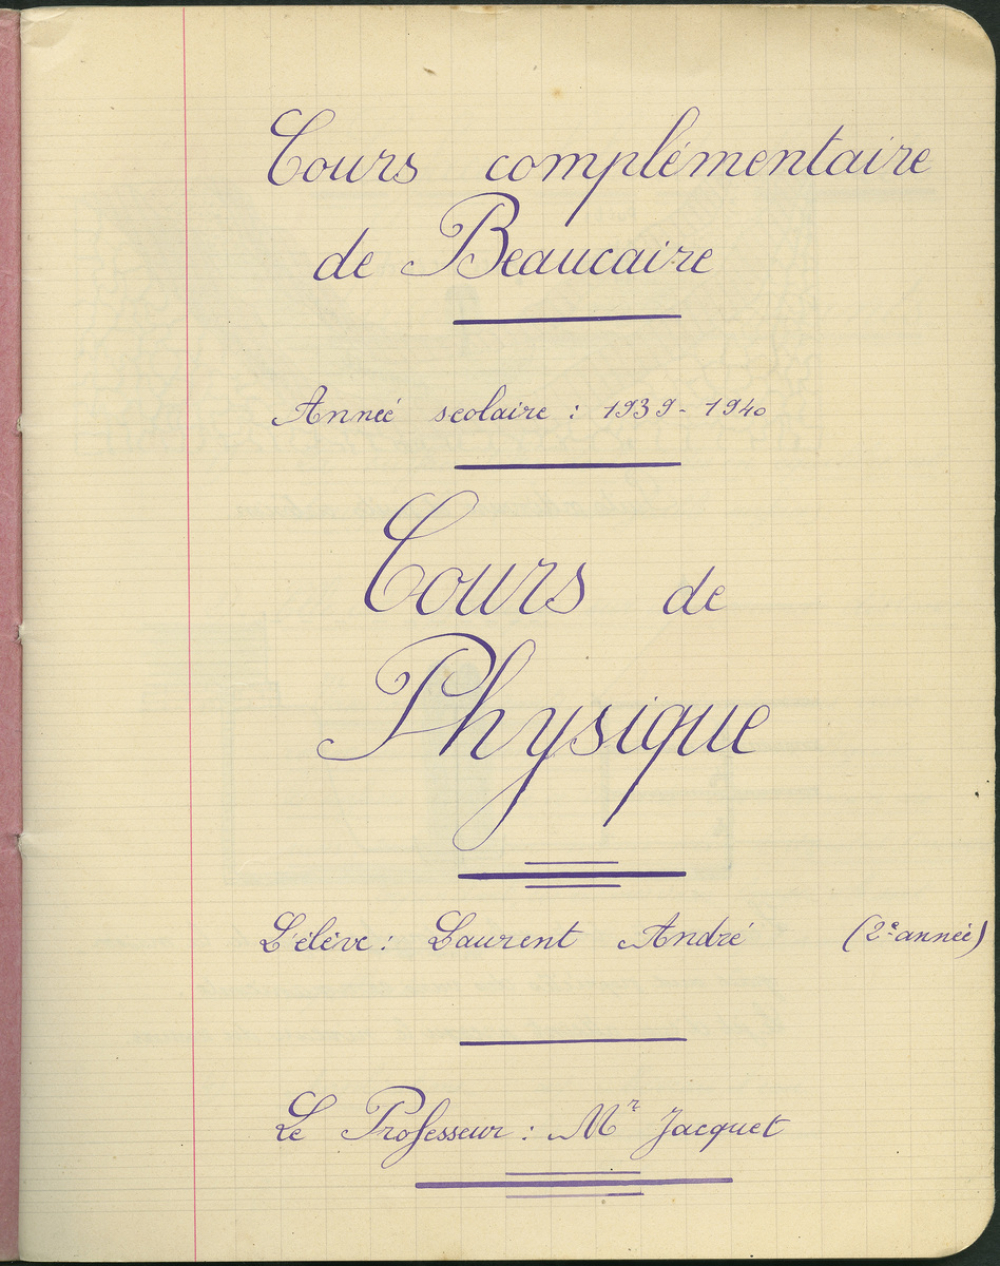 Cours complémentaire
de Beaucaire
Année scolaire : 1939-1940
Cours de
Physique
L'élève : Laurent André (2e année)
Le Professeur : Mr Jacquet